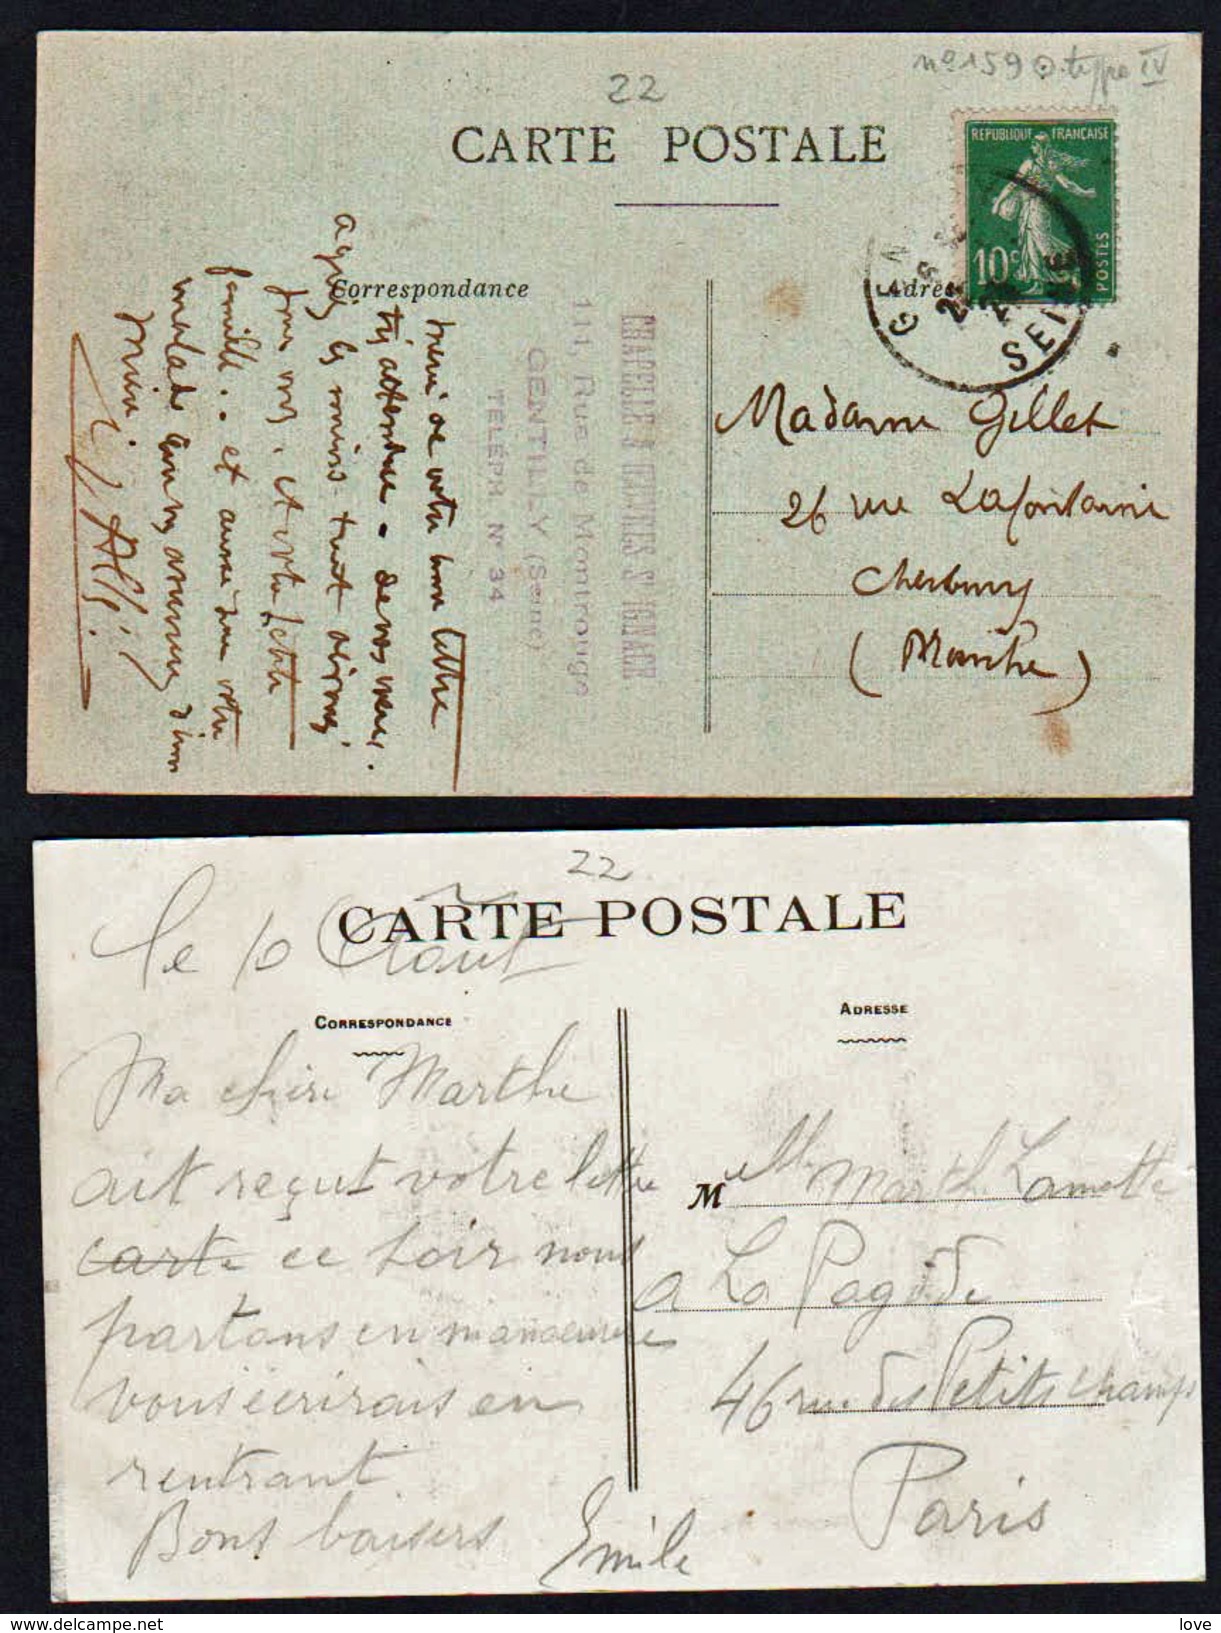 nº 159 O. type IV
22
CARTE POSTALE
REPUBLIQUE FRANÇAISE
10c
POSTES
SEINE
Correspondance
Adresse
Madame Gillet
26 rue Lafontaine
Cherbourg
(Manche)
CHAPELLE & OEUVRES St IGNACE
111, Rue de Montrouge
GENTILLY (Seine)
TÉLÉPH. Nº 34
Merci de votre bonne lettre
très attendue. de vos
après les
pour vous. et votre
famille.. et aussi pour votre
malade
22
CARTE POSTALE
le 10 Août
CORRESPONDANCE
ADRESSE
Ma chère Marthe
ait reçut votre lettre
carte ce soir nous
partons en manoeuvre
vous écrirais en
rentrant
Bons baisers
Emile
Mlle Marthe Lamotte
a La Pagode
46 rue des Petits champs
Paris
love